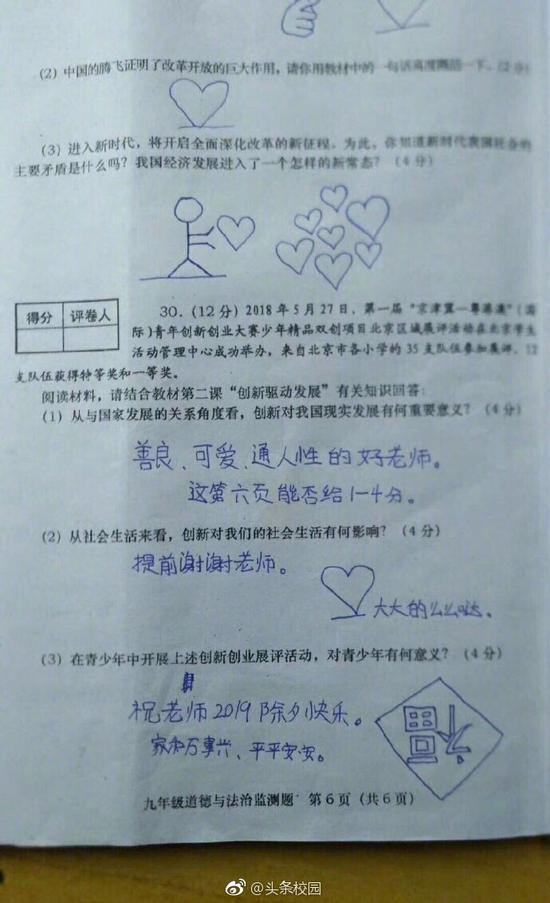 (2) 中国的腾飞证明了改革开放的巨大作用，请你用教材中的一句话高度概括一下。(2分)
(3) 进入新时代，将开启全面深化改革的新征程。为此，你知道新时代我国社会的
主要矛盾是什么吗？我国经济发展进入了一个怎样的新常态？（4分）
得分 评卷人
30.（12分）2018年5月27日，第一届“京津冀—粤港澳”（国
际）青年创新创业大赛少年精品双创项目北京区域展评活动在北京学生
活动管理中心成功举办，来自北京市各小学的35支队伍参加展评，12
支队伍获得特等奖和一等奖。
阅读材料，请结合教材第二课“创新驱动发展”有关知识回答：
(1) 从与国家发展的关系角度看，创新对我国现实发展有何重要意义？（4分）
善良、可爱、通人性的好老师。
这第六页能否给1-4分。
(2) 从社会生活来看，创新对我们的社会生活有何影响？（4分）
提前谢谢老师。
大大的么么哒。
(3) 在青少年中开展上述创新创业展评活动，对青少年有何意义？（4分）
祝老师2019除夕快乐。
家和万事兴、平平安安。
福
九年级道德与法治监测题 第6页（共6页）
@头条校园